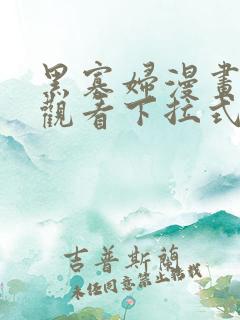 黑寡婦漫畫
觀看下拉式
吉普斯蘭
未經同意禁止轉載